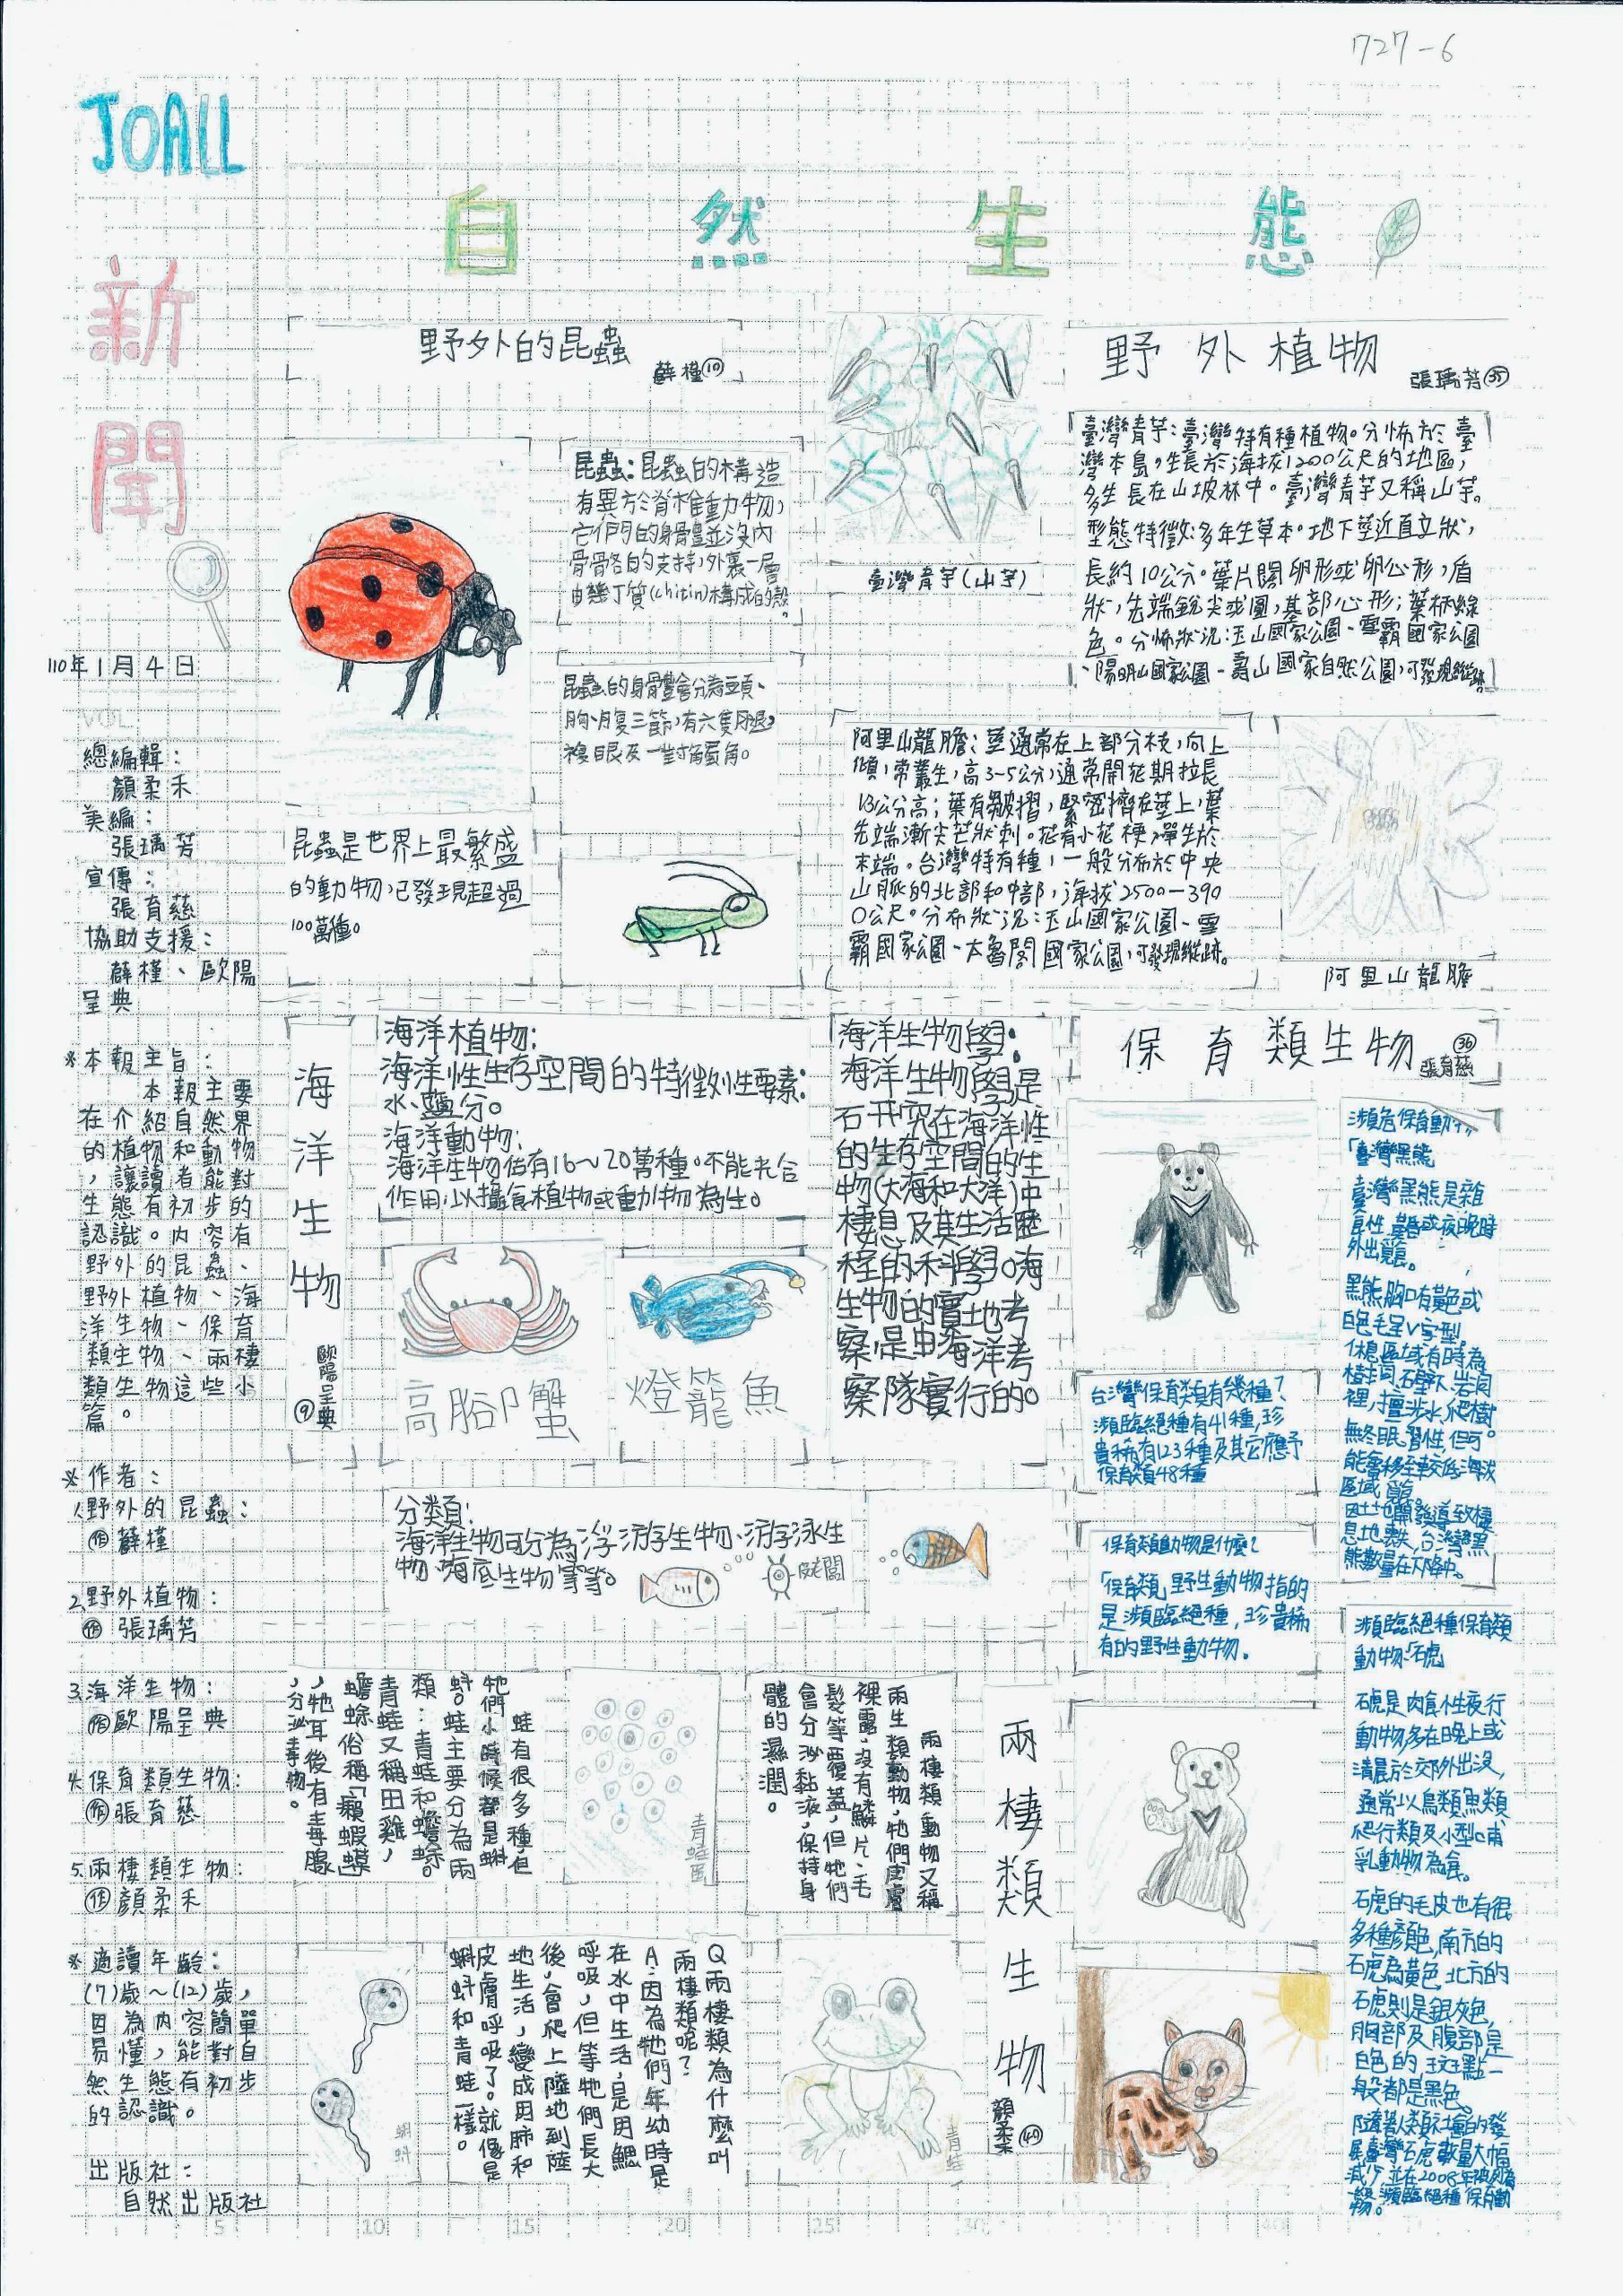 727-6
JOALL
新聞
自然生態
110年1月4日
VOL
總編輯：
顏柔禾
美編：
張瑀芳
宣傳：
張育慈
協助支援：
薛槿、歐陽
呈典
※本報主旨：
本報主要
在介紹自然界
的植物和動物
，讓讀者能對
生態有初步的
認識。內容有
野外的昆蟲、
野外植物、海
洋生物、保育
類生物、兩棲
類生物這些小
篇。
※作者：
1.野外的昆蟲：
作薛槿
2.野外植物：
作張瑀芳
3.海洋生物：
作歐陽呈典
4.保育類生物：
作張育慈
5.兩棲類生物：
作顏柔禾
※適讀年齡：
(7)歲～(12)歲，
因為內容簡單
易懂，能對自
然生態有初步
的認識。
出版社：
自然出版社
野外的昆蟲
薛槿⑩
昆蟲：昆蟲的構造
有異於脊椎動物，
它們的身體並沒內
骨骼的支持，外裹一層
由幾丁質(chitin)構成的殼。
昆蟲的身體會分為頭、
胸、腹三節，有六隻腿，
複眼及一對觸角。
昆蟲是世界上最繁盛
的動物，已發現超過
100萬種。
野外植物
張瑀芳㉟
臺灣青芋：臺灣特有種植物。分怖於臺
灣本島，生長於海拔1200公尺的地區，
多生長在山坡林中。臺灣青芋又稱山芋。
型態特徵：多年生草本。地下莖近直立狀，
長約10公分。葉片闊卵形或卵心形，盾
狀，先端銳尖或圓，基部心形；葉柄綠
色。分怖狀況：玉山國家公園、雪霸國家公園
、陽明山國家公園、壽山國家自然公園，可發現蹤跡。
臺灣青芋(山芋)
阿里山龍膽：莖通常在上部分枝，向上
傾，常叢生，高3~5公分，通常開花期拉長
13公分高；葉有皺摺，緊密擠在莖上，葉
先端漸尖芒狀刺。花有小花梗，單生於
末端。台灣特有種，一般分佈於中央
山脈的北部和中部，海拔2500-390
0公尺。分布狀況：玉山國家公園、雪
霸國家公園、太魯閣國家公園，可發現蹤跡。
阿里山龍膽
海洋生物
歐陽呈典
⑨
海洋植物：
海洋性生存空間的特徵刻性要素：
水、鹽分。
海洋動物：
海洋生物佔有16~20萬種。不能光合
作用，以攝食植物或動物為生。
高腳蟹
燈籠魚
海洋生物學：
海洋生物學是
研究在海洋性
的生存空間的生
物(大海和大洋)中
棲息及其生活歷
程的科學。海
生物的實地考
察，是由海洋考
察隊實行的。
分類：
海洋生物可分為浮游生物、游泳生
物、海底生物等等。
保育類生物
㊱
張育慈
瀕危保育動
「臺灣黑熊
臺灣黑熊是雜
食性，晨昏或夜晚時
外出覓食。
黑熊胸口有黃色或
白色毛呈V字型。
休息區域有時為
樹洞、石壁下、岩洞
裡，擅涉水、爬樹。
無冬眠習性，但可
能會移至較低海拔
區域覓食。
因土地開發導致棲
息地喪失，台灣黑
熊數量在下降中。
台灣保育類有幾種？
瀕臨絕種有41種，珍
貴稀有123種及其它應予
保育類48種
保育類動物是什麼？
「保育類」野生動物指的
是瀕臨絕種，珍貴稀
有的野生動物.
瀕臨絕種保育類
動物：「石虎
石虎是肉食性夜行
動物多在晚上或
清晨於郊外出沒，
通常以鳥類魚類
爬行類及小型哺
乳動物為食。
石虎的毛皮也有很
多種顏色，南方的
石虎為黃色，北方的
石虎則是銀灰色，
胸部及腹部是
白色的，斑點一
般都是黑色。
隨著人類社會的發
展臺灣石虎數量大幅
減少，並在2008年被列為
瀕臨絕種保育動
物。
兩棲類生物
顏柔㊵
兩棲類動物又稱
兩生類動物，牠們皮膚
裸露，沒有鱗片、毛
髮等覆蓋，但牠們
會分泌黏液，保持身
體的濕潤。
青蛙
蛙有很多種，但
牠們小時候都是蝌
蚪。蛙主要分為兩
類：青蛙和蟾蜍。
青蛙又稱田雞，
蟾蜍俗稱「癩蝦蟆
，牠耳後有毒腺
，分泌毒物。
Q兩棲類為什麼叫
兩棲類呢？
A：因為牠們年幼時是
在水中生活，是用鰓
呼吸，但等牠們長大
後，會爬上陸地到陸
地生活，變成用肺和
皮膚呼吸了。就像是
蝌蚪和青蛙一樣。
蝌蚪
青蛙
5 10 15 20 25 30 40